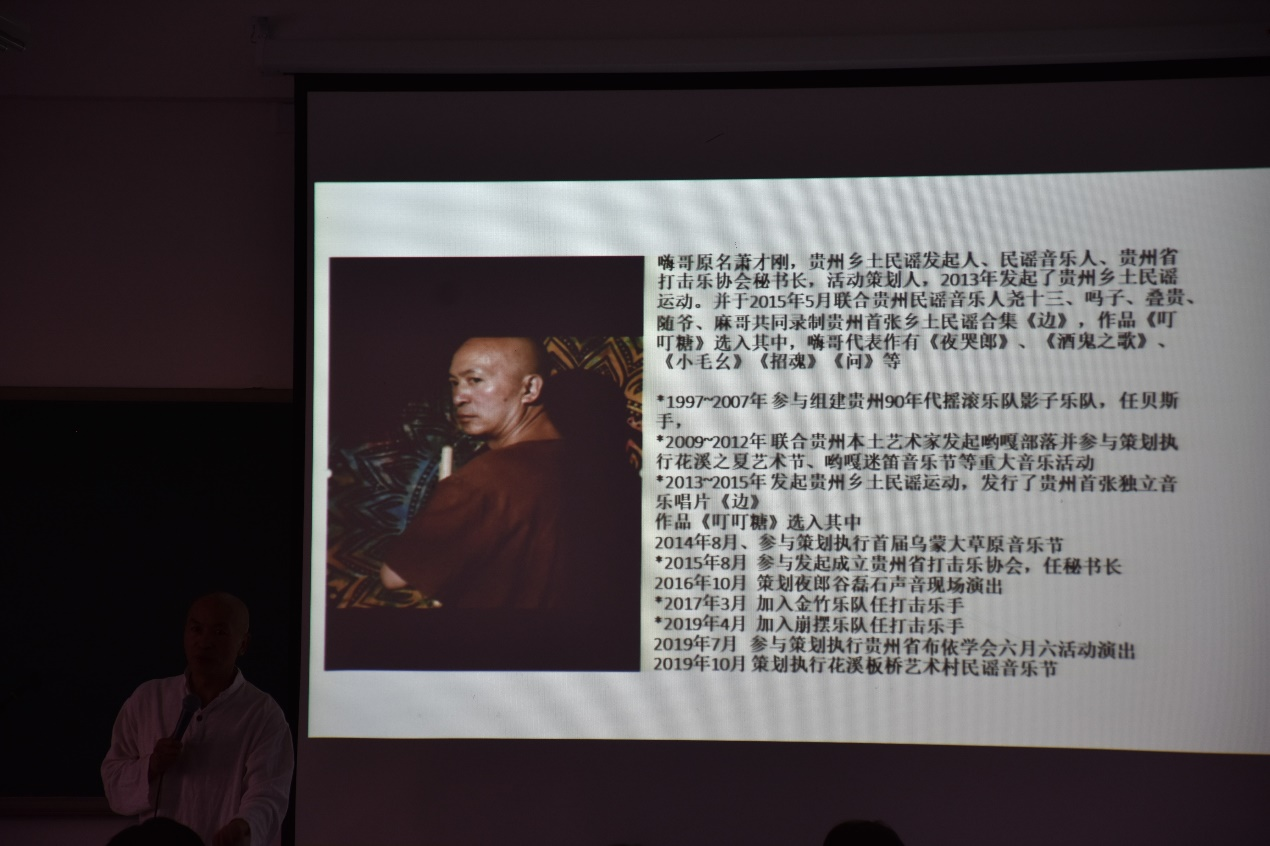 嗨哥原名萧才刚，贵州乡土民谣发起人、民谣音乐人、贵州省
打击乐协会秘书长，活动策划人，2013年发起了贵州乡土民谣
运动。并于2015年5月联合贵州民谣音乐人尧十三、吗子、叠贵、
随爷、麻哥共同录制贵州首张乡土民谣合集《边》，作品《叮
叮糖》选入其中，嗨哥代表作有《夜哭郎》、《酒鬼之歌》、
《小毛幺》《招魂》《问》等
*1997~2007年 参与组建贵州90年代摇滚乐队影子乐队，任贝斯
手，
*2009~2012年 联合贵州本土艺术家发起哟嘎部落并参与策划执
行花溪之夏艺术节、哟嘎迷笛音乐节等重大音乐活动
*2013~2015年 发起贵州乡土民谣运动，发行了贵州首张独立音
乐唱片《边》
作品《叮叮糖》选入其中
2014年8月、参与策划执行首届乌蒙大草原音乐节
*2015年8月 参与发起成立贵州省打击乐协会，任秘书长
2016年10月 策划夜郎谷磊石声音现场演出
*2017年3月 加入金竹乐队任打击乐手
*2019年4月 加入崩摆乐队任打击乐手
2019年7月 参与策划执行贵州省布依学会六月六活动演出
2019年10月 策划执行花溪板桥艺术村民谣音乐节